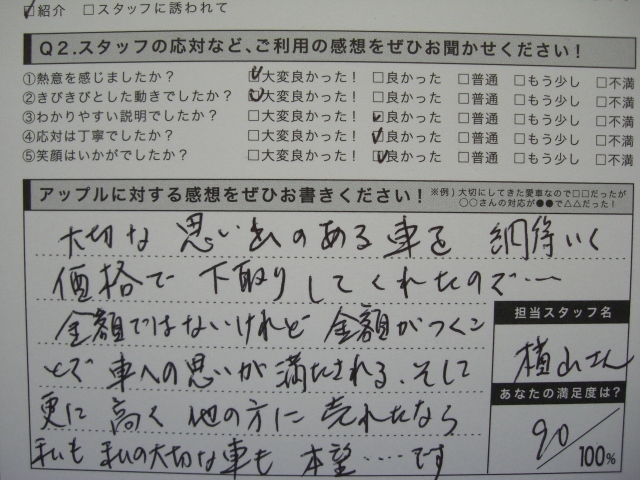 ☑紹介 □スタッフに誘われて
Q2.スタッフの応対など、ご利用の感想をぜひお聞かせください!
①熱意を感じましたか? ☑大変良かった! □良かった □普通 □もう少し □不満
②きびきびとした動きでしたか? ☑大変良かった! □良かった □普通 □もう少し □不満
③わかりやすい説明でしたか? □大変良かった! ☑良かった □普通 □もう少し □不満
④応対は丁寧でしたか? □大変良かった! ☑良かった □普通 □もう少し □不満
⑤笑顔はいかがでしたか? □大変良かった! ☑良かった □普通 □もう少し □不満
アップルに対する感想をぜひお書きください! ※例)大切にしてきた愛車なので□□だったが
○○さんの対応が●●で△△だった!
大切な思い出のある車を 納得いく
価格で 下取りしてくれたので…
金額ではないけれど 金額がつくこ
とで 車への思いが満たされる、そして
更に 高く 他の方に 売れたなら
私も 私の大切な車も 本望……です
担当スタッフ名
横山さん
あなたの満足度は?
90/100%